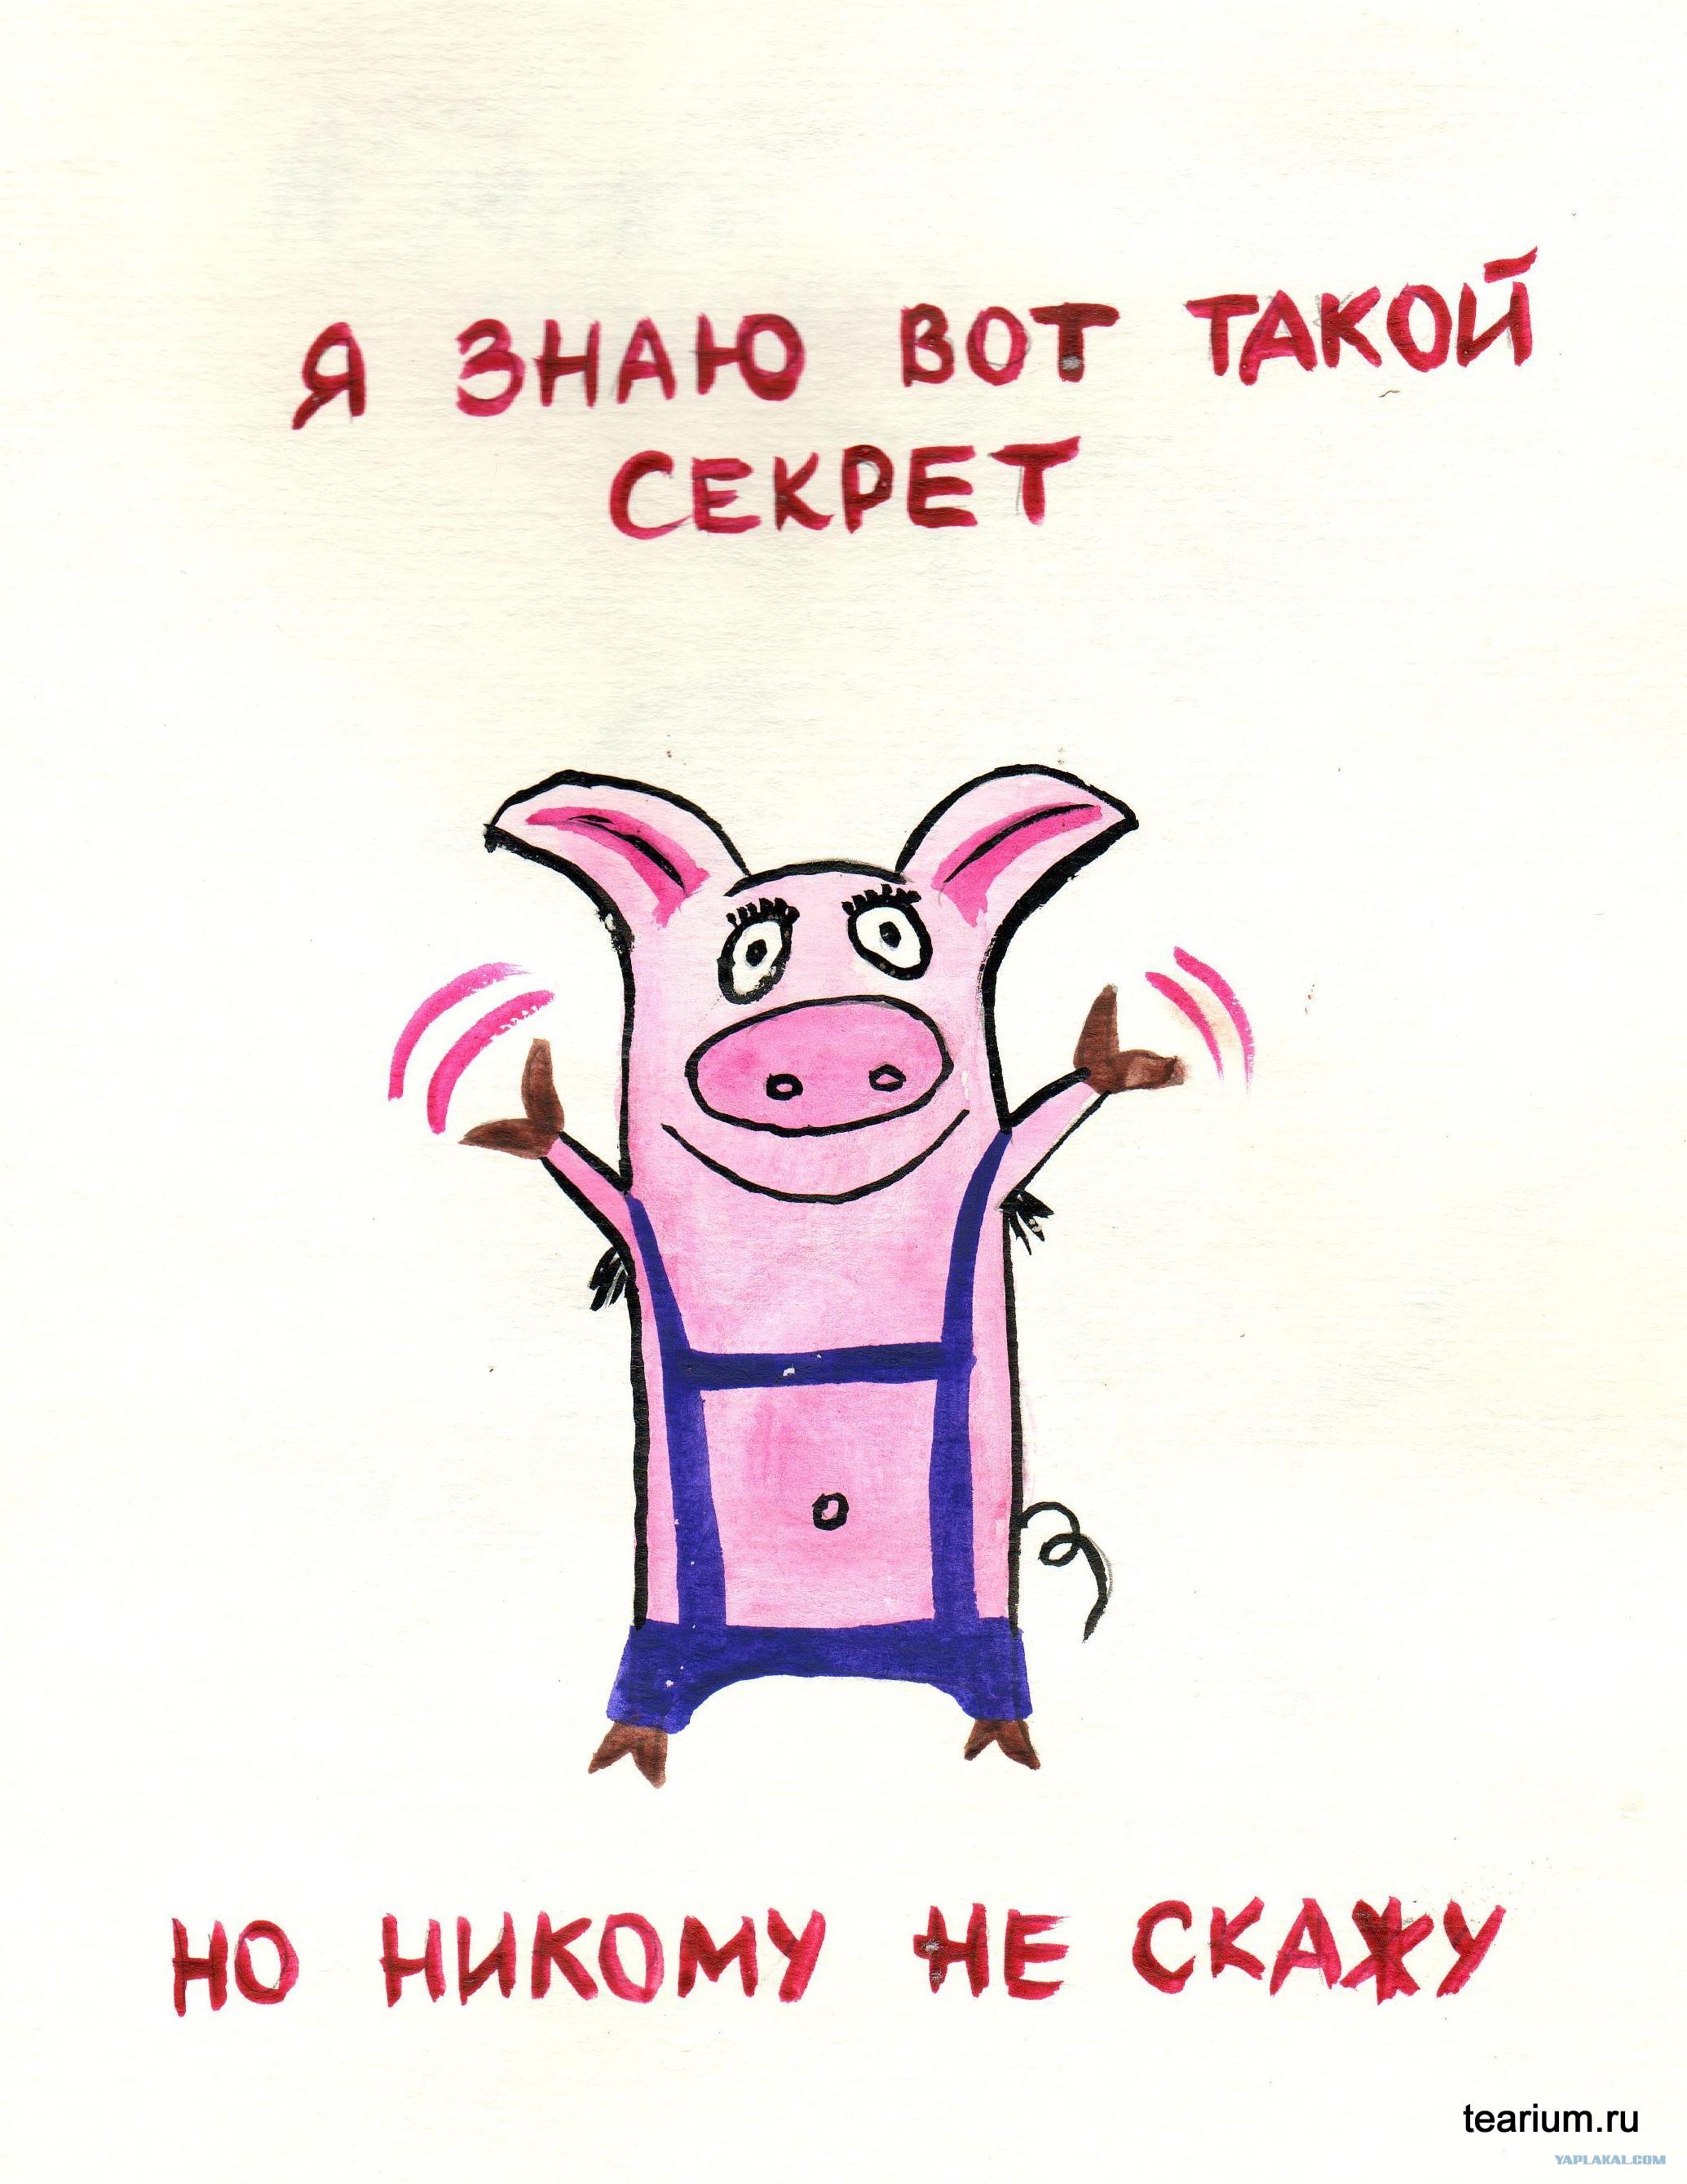 Я ЗНАЮ ВОТ ТАКОЙ
СЕКРЕТ
НО НИКОМУ НЕ СКАЖУ
tearium.ru
YAPLAKAL.COM